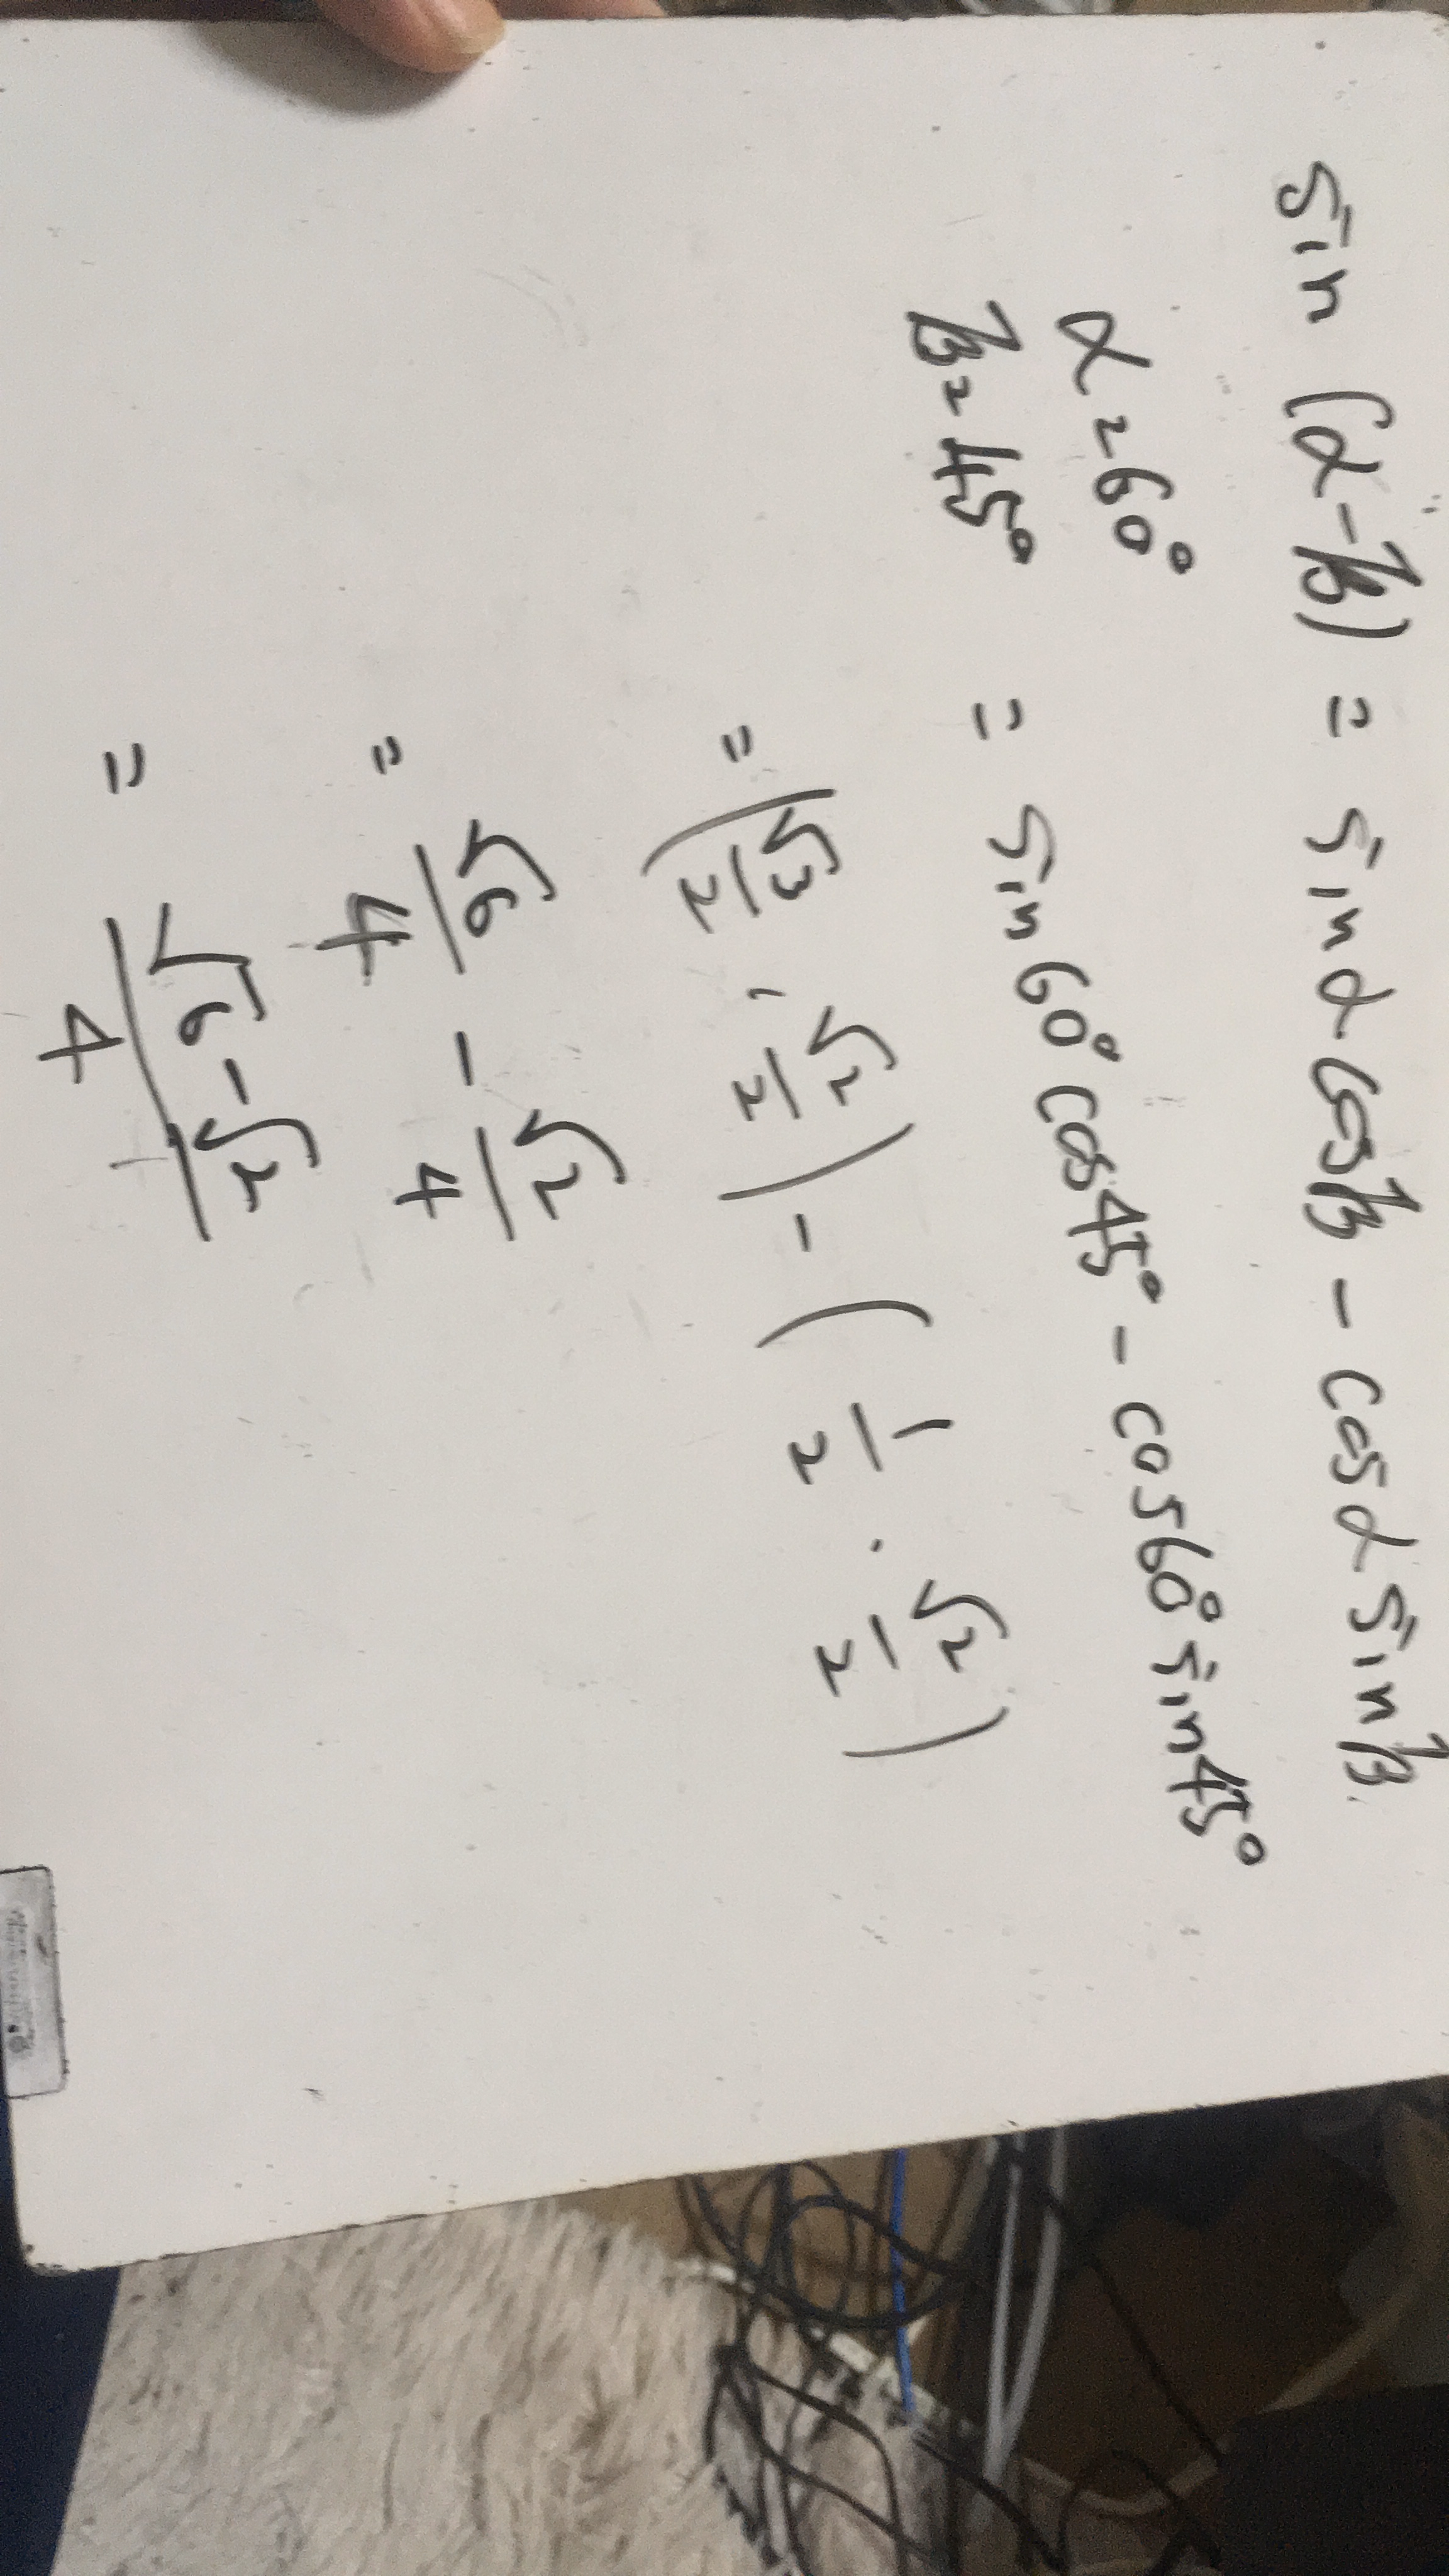 sin (α-β) = sinα cosβ - cosα sinβ
α = 60°
β = 45° = sin60° cos45° - cos60° sin45°
= (√3/2 · √2/2) - (1/2 · √2/2)
= √6/4 - √2/4
= √6-√2/4